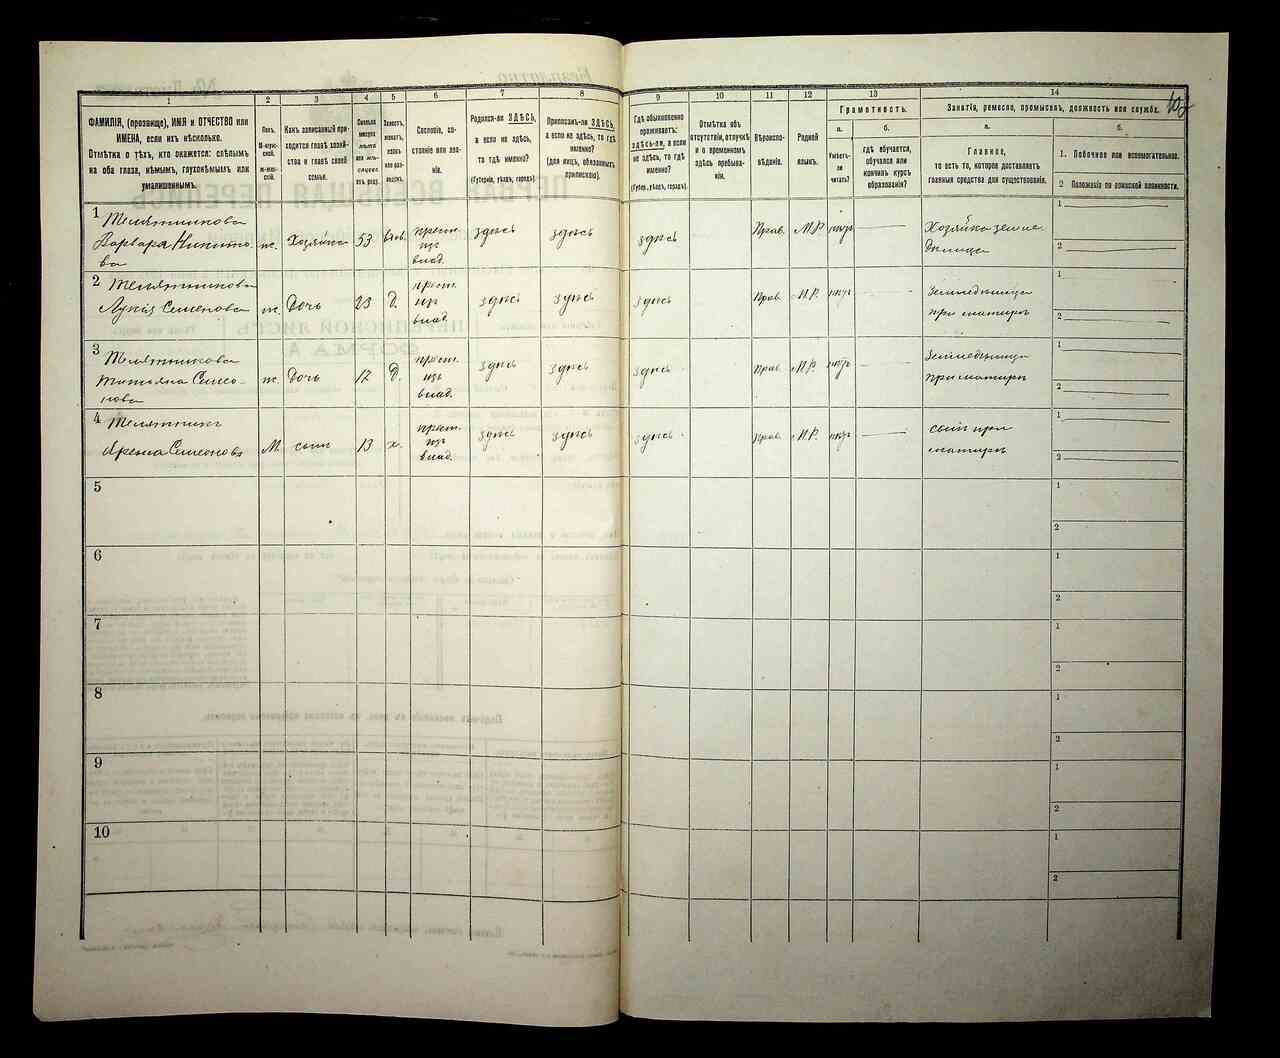 1
2
3
4
5
6
7
8
ФАМИЛІЯ, (прозвище), ИМЯ и ОТЧЕСТВО или
ИМЕНА, если ихъ нѣсколько.
Отмѣтка о тѣхъ, кто окажется: слѣпымъ
на оба глаза, нѣмымъ, глухонѣмымъ или
умалишеннымъ.
Полъ.
М-муж-
ской.
Ж-жен-
скій.
Какъ записанный при-
ходится главѣ хозяй-
ства и главѣ своей
семьи.
Сколько
минуло
лѣтъ
или мѣ-
сяцевъ
отъ роду.
Холостъ,
женатъ,
вдовъ
или раз-
веденъ.
Сословіе, со-
стояніе или зва-
ніе.
Родился-ли ЗДѢСЬ,
а если не здѣсь,
то гдѣ именно?
(Губернія, уѣздъ, городъ).
Приписанъ-ли ЗДѢСЬ,
а если не здѣсь, то гдѣ
именно?
(для лицъ, обязанныхъ
припискою).
9
10
11
12
13
14
Гдѣ обыкновенно
проживаетъ:
ЗДѢСЬ-ли, а если
не здѣсь, то гдѣ
именно?
(Губерн., уѣздъ, городъ).
Отмѣтка объ
отсутствіи, отлучкѣ
и о временномъ
здѣсь пребыва-
ніи.
Вѣроиспо-
вѣданіе.
Родной
языкъ.
Грамотность.
а.
б.
Умѣетъ-
ли
читать?
гдѣ обучается,
обучался или
кончилъ курсъ
образованія?
Занятія, ремесло, промыселъ, должность или служба.
а.
б.
Главное,
то есть то, которое доставляетъ
главныя средства для существованія.
1. Побочное или вспомогательное.
2 Положеніе по воинской повинности.
1 Телятникова
Варвара Никито
ва
ж. Хозяйка 53 вдов. крест. из влад. здѣсь здѣсь здѣсь Прав. М.Р. нѣтъ
Хозяйка земле
дѣлица
1
2
2 Телятникова
Лукія Семенова
ж. Дочь 23 Д. крест. из влад. здѣсь здѣсь здѣсь Прав. М.Р. нѣтъ
Земледѣлица
при матери
1
2
3 Телятникова
Татьяна Семе-
нова
ж. Дочь 17 Д. крест. из влад. здѣсь здѣсь здѣсь Прав. М.Р. нѣтъ
Земледѣлица
при матери
1
2
4 Телятникъ
Ярема Семеновъ
М. сынъ 13 х. крест. из влад. здѣсь здѣсь здѣсь Прав. М.Р. нѣтъ
сынъ при
матери
1
2
5
1
2
6
1
2
7
1
2
8
1
2
9
1
2
10
1
2